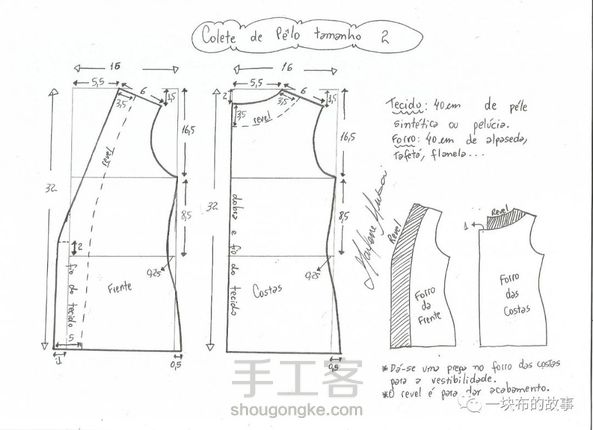 Colete de Pêlo tamanho 2
16
5,5
6
3,5
1,5
revel
16,5
32
8,5
2
0,25
Frente
fio do tecido
5
1
0,5
16
5,5
6
2
3,5
3,5
1,5
revel
16,5
32
8,5
0,25
dobra e fio do tecido
Costas
0,5
Tecido: 40 cm de pêle
sintética ou pelúcia.
Forro: 40 cm de alpaseda,
tafetá, flanela...
Revel
Forro
da
Frente
Revel
1
Forro
das
Costas
*Dá-se uma prega no forro das costas
para a vestibilidade.
*O revel é para dar acabamento.
手工客
shougongke.com
一块布的故事